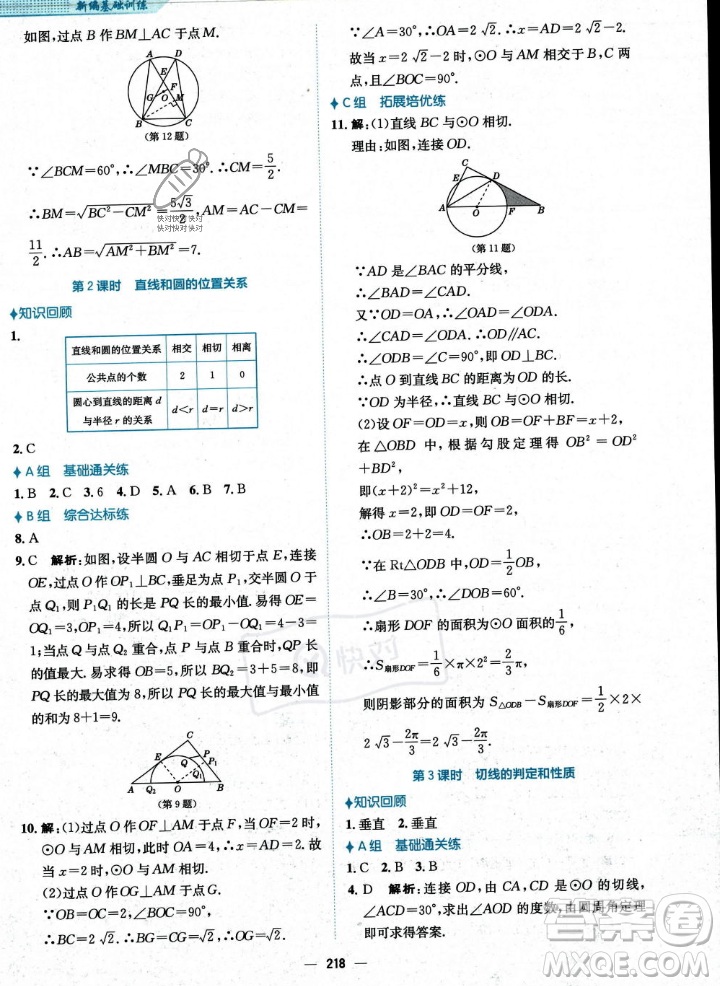 新编基础训练
如图,过点 B 作 BM⊥AC 于点 M.
A D
E F
G O M
B C
(第 12 题)
∵∠BCM=60°,∴∠MBC=30°.∴CM=5/2.
∴BM=√(BC²-CM²)=5√3/2.∴AM=AC-CM=
11/2.∴AB=√(AM²+BM²)=7.
快对 快对 快对
第 2 课时 直线和圆的位置关系
知识回顾
1.
直线和圆的位置关系 相交 相切 相离
公共点的个数 2 1 0
圆心到直线的距离 d
与半径 r 的关系 d<r d=r d>r
2. C
A 组 基础通关练
1. B 2. C 3. 6 4. D 5. A 6. B 7. B
B 组 综合达标练
8. A
9. C 解析:如图,设半圆 O 与 AC 相切于点 E,连接
OE,过点 O 作 OP₁⊥BC,垂足为点 P₁,交半圆 O 于点
Q₁,则 P₁Q₁ 的长是 PQ 长的最小值. 易得 OE=
OQ₁=3,OP₁=4,所以 P₁Q₁=OP₁-OQ₁=4-3=
1;当点 Q₂ 在 AB 边上,点 P 与点 B 重合时,PQ 长的
值最大. 易求得 OB=5,所以 BQ₂=3+5=8. 即
PQ 长的最大值为 8,所以 PQ 长的最大值与最小值
的和为 8+1=9.
C
E P
P₁
Q Q₁
A Q₂ O B
(第 9 题)
10. 解:(1)过点 O 作 OF⊥AM 于点 F,当 OF=2 时,
⊙O与AM相切,此时 OA=4. 故当 OA=4 时,
⊙O与 AM 相切.
(2)过点 O 作 OG⊥AM 于点 G.
∵OB=OC=2,∠BOC=90°,
∴BC=2√2.∵OG⊥BC,∴BG=CG=√2.
∴OG=√2.∵∠A=30°,∴OA=2√2.
故当 x=2√2 时,⊙O 与 AM 相交于 B,C 两
点,且∠BOC=90°.
C 组 拓展培优练
11. 解:(1)直线 BC 与⊙O 相切.
理由:如图,连接 OD.
C
E D
A O F B
(第 11 题)
∵AD 是∠BAC 的平分线,
∴∠BAD=∠CAD.
又∵OD=OA,∴∠OAD=∠ODA.
∴∠CAD=∠ODA.∴OD∥AC.
∴∠ODB=∠C=90°,即OD⊥BC.
∴点 O 到直线 BC 的距离为 OD.
∵OD 为半径,∴直线 BC 与⊙O 相切.
(2)设 OF=OD=x,则 OB=OF+BF=x+2,
在 △OBD 中,根据勾股定理得 OB²=OD²
+BD²,
即(x+2)²=x²+12,
解得 x=2,即OD=OF=2,
∴OB=2+2=4.
∵在 Rt△ODB 中,OD=1/2OB,
∴∠B=30°,∴∠DOB=60°.
∴扇形 DOF 的面积为⊙O 面积的1/6.
∴S扇形DOF=1/6×π×2²=2π/3.
则阴影部分的面积为 S△ODB-S扇形DOF=1/2×2×
2√3-2π/3=2√3-2π/3.
第 3 课时 切线的判定和性质
知识回顾
1. 垂直 2. 垂直
A 组 基础通关练
1. C 2. B 3. B
4. D 解析:连接 OD,由 CA,CD 是⊙O 的切线,
∠ACD=30°,求出∠AOD 的度数,由圆周角定理
即可求得答案.
218
快对
答案圈